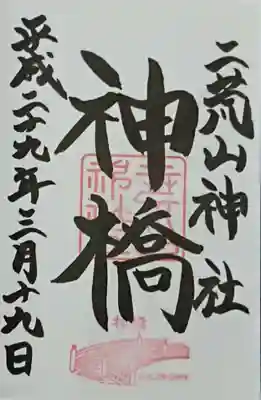 二荒山神社
神橋
平成二十九年三月十九日